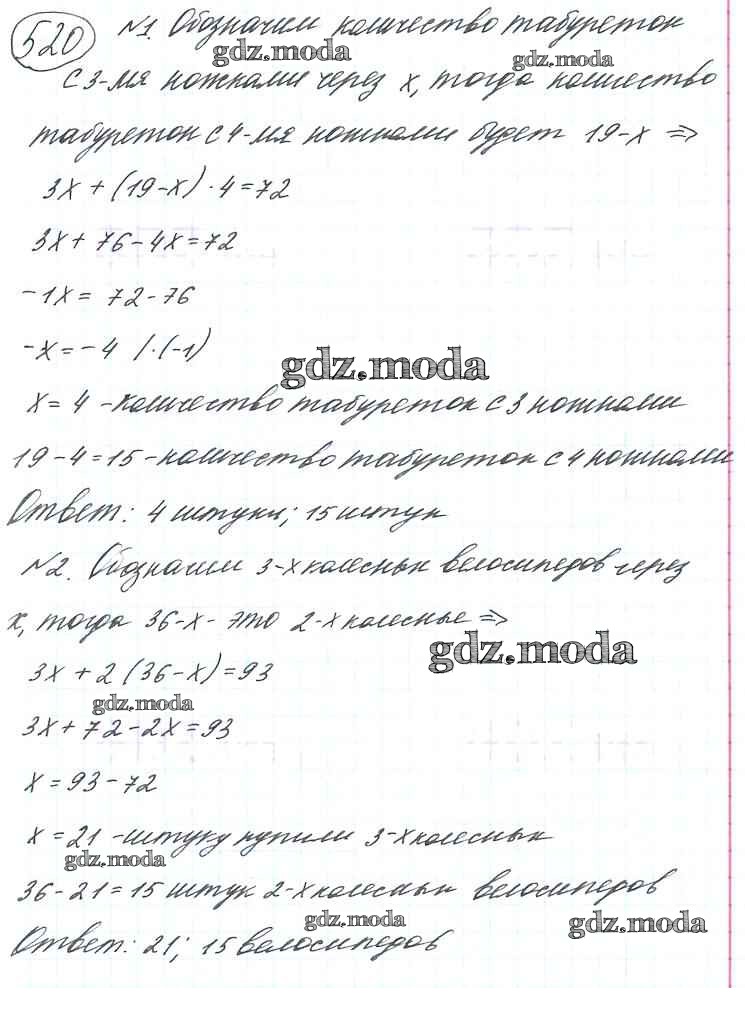 520 №1. Обозначим количество табуреток
gdz.moda gdz.moda
с 3-мя ножками через x, тогда количество
табуреток с 4-мя ножками будет 19-x ⇒
3x + (19-x) · 4 = 72
3x + 76 - 4x = 72
-1x = 72 - 76
-x = -4 / · (-1)
gdz.moda
x = 4 - количество табуреток с 3 ножками
19 - 4 = 15 - количество табуреток с 4 ножками
Ответ: 4 штуки; 15 штук
№2. Обозначим 3-х колесных велосипедов через
x, тогда 36-x - это 2-х колесные ⇒
gdz.moda
3x + 2 (36-x) = 93
gdz.moda
3x + 72 - 2x = 93
x = 93 - 72
x = 21 - штуку купили 3-х колесных
gdz.moda
36 - 21 = 15 штук 2-х колесных велосипедов
gdz.moda gdz.moda
Ответ: 21; 15 велосипедов